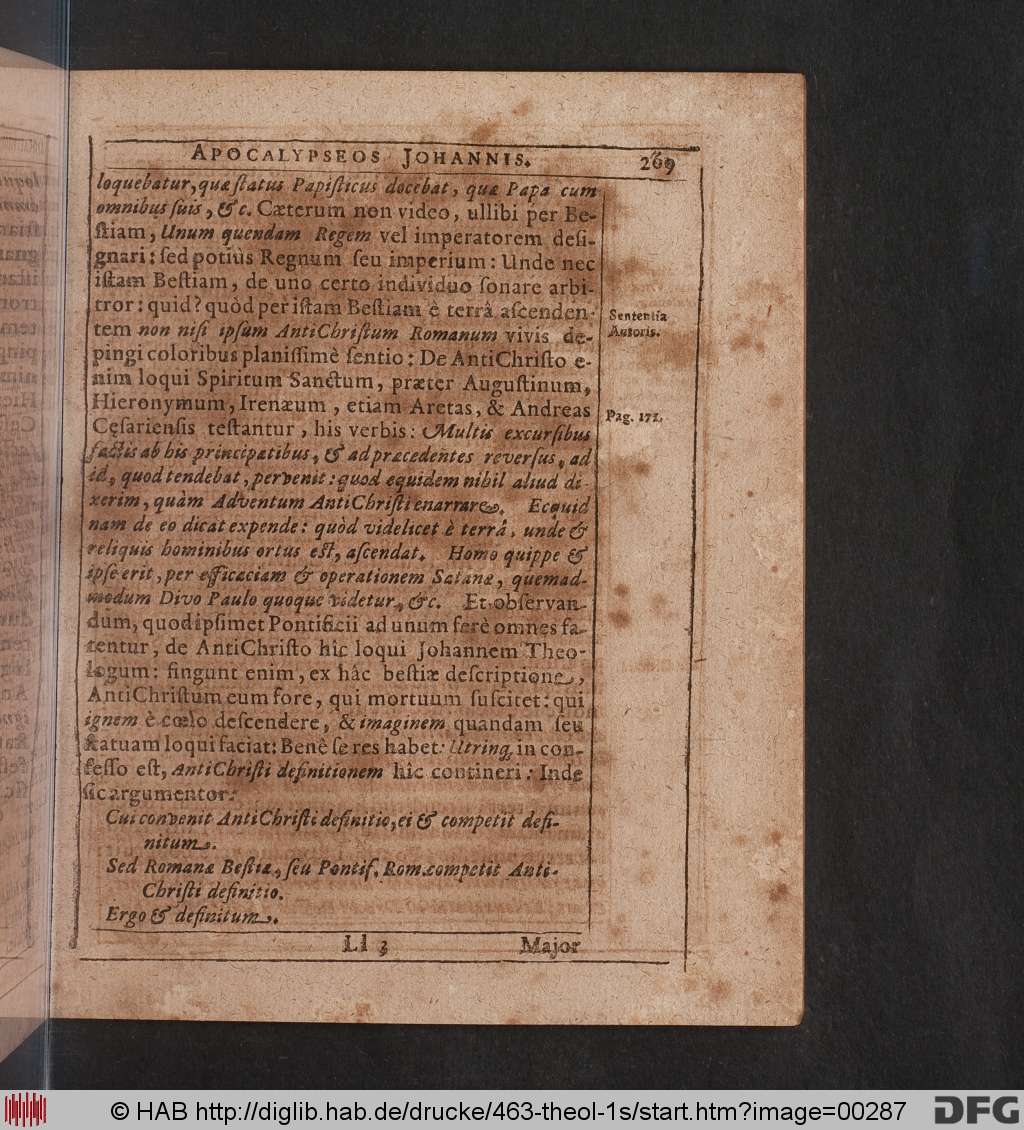 APOCALYPSEOS JOHANNIS. 269
loquebatur, quæ ſtatus Papiſticus docebat, quæ Papa cum
omnibus ſuis, & c. Cæterum non video, ullibi per Be-
ſtiam, Unum quendam Regem vel imperatorem deſi-
gnari: ſed potiùs Regnum ſeu imperium: Unde nec
iſtam Beſtiam, de uno certo individuo ſonare arbi-
tror: quid? quòd per iſtam Beſtiam è terrâ aſcenden-
tem non niſi ipſum AntiChriſtum Romanum vivis de-
pingi coloribus planiſſimè ſentio: De AntiChriſto e-
nim loqui Spiritum Sanctum, præter Auguſtinum,
Hieronymum, Irenæum, etiam Aretas, & Andreas
Cęſarienſis teſtantur, his verbis: Multis excurſibus
factis ab his principatibus, & ad præcedentes reverſus, ad
id, quod tendebat, pervenit: quod equidem nihil aliud di-
xerim, quàm Adventum AntiChriſti enarrare. Ecquid
nam de eo dicat expende: quòd videlicet è terrâ, unde &
reliquis hominibus ortus eſt, aſcendat. Homo quippe &
ipſe erit, per efficaciam & operationem Satanæ, quemad-
modum Divo Paulo quoque videtur, &c. Et obſervan-
dum, quod ipſimet Pontificii ad unum ferè omnes fa-
tentur, de AntiChriſto hîc loqui Johannem Theo-
logum: fingunt enim, ex hâc beſtiæ deſcriptione,
AntiChriſtum eum fore, qui mortuum ſuſcitet: qui
ignem è cœlo deſcendere, & imaginem quandam ſeu
ſtatuam loqui faciat: Benè ſe res habet: Utrinq; in con-
feſſo eſt, AntiChriſti definitionem hîc contineri: Inde
ſic argumentor:
Cui convenit AntiChriſti definitio, ei & competit defi-
nitum.
Sed Romanæ Beſtiæ, ſeu Pontif. Rom. competit Anti-
Chriſti definitio.
Ergo & definitum.
Sententia
Autoris.
Pag. 172.
Ll 3 Major
© HAB http://diglib.hab.de/drucke/463-theol-1s/start.htm?image=00287 DFG